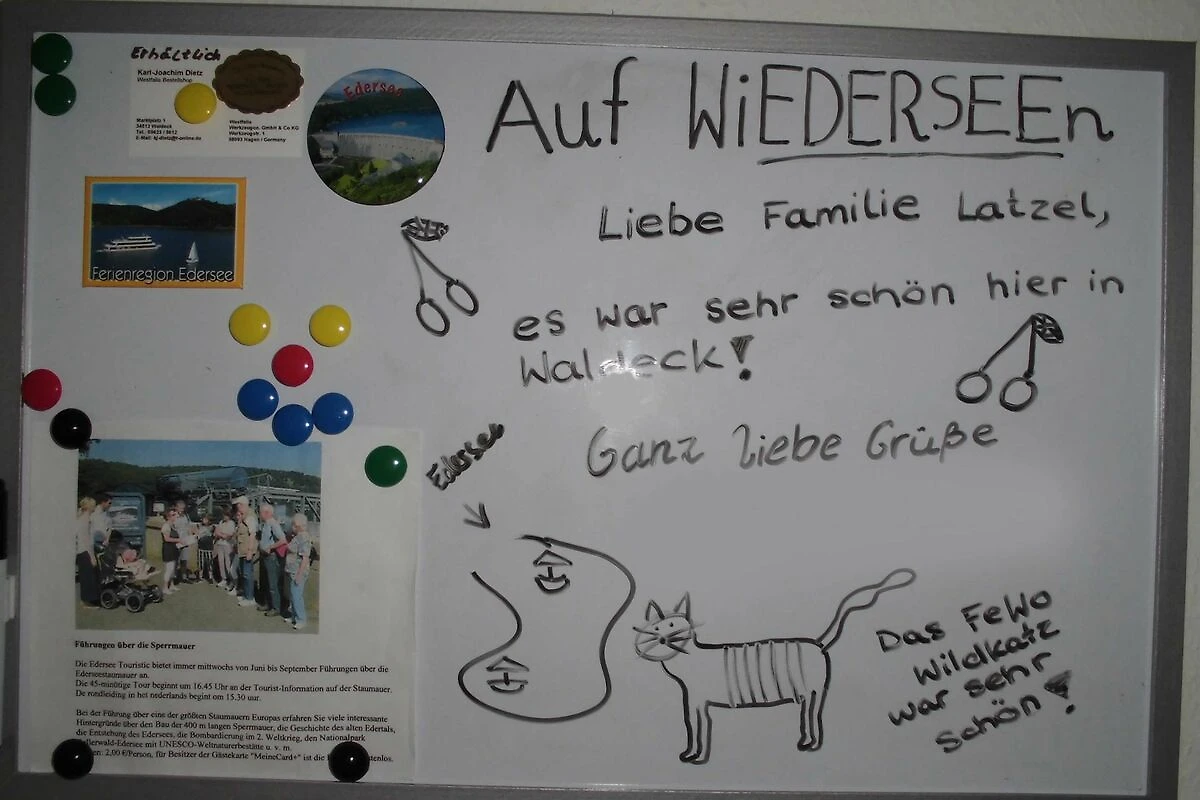 Erhältlich
Karl-Joachim Dietz
Westfalia Bestellshop
Marktplatz 1
34513 Waldeck
Tel.: 05623 / 5612
E-Mail: kj-dietz@t-online.de
Westfalia
Werkzeugco. GmbH & Co KG
Werkzeugstr. 1
58093 Hagen / Germany
Edersee
Ferienregion Edersee
Auf WiEDERSEEn
Liebe Familie Latzel,
es war sehr schön hier in
Waldeck!
Ganz liebe Grüße
Edersee
Das FeWo
Wildkatz
war sehr
schön!
Führungen über die Sperrmauer
Die Edersee Touristic bietet immer mittwochs von Juni bis September Führungen über die
Ederseestaumauer an.
Die 45-minütige Tour beginnt um 16.45 Uhr an der Tourist-Information auf der Staumauer.
De rondleiding in het nederlands begint om 15.30 uur.
Bei der Führung über eine der größten Staumauern Europas erfahren Sie viele interessante
Hintergründe über den Bau der 400 m langen Sperrmauer, die Geschichte des alten Edertals,
die Entstehung des Edersees, die Bombardierung im 2. Weltkrieg, den Nationalpark
Kellerwald-Edersee mit UNESCO-Weltnaturerbestätte u. v. m.
2,00 €/Person, für Besitzer der Gästekarte "MeineCard+" ist die